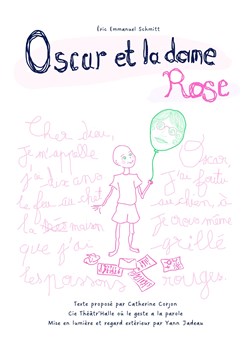 Éric Emmanuel Schmitt
Oscar et la dame
Rose
Cher dieu,
Je m'appelle Oscar,
j'ai dix ans j'ai foutu
le feu au chat au chien,
la maison Je crois même
que j'ai grillé
les poissons rouges.
Texte proposé par Catherine Corjon
Cie Théâtr'Halle où le geste a la parole
Mise en lumière et regard extérieur par Yann Jadeau